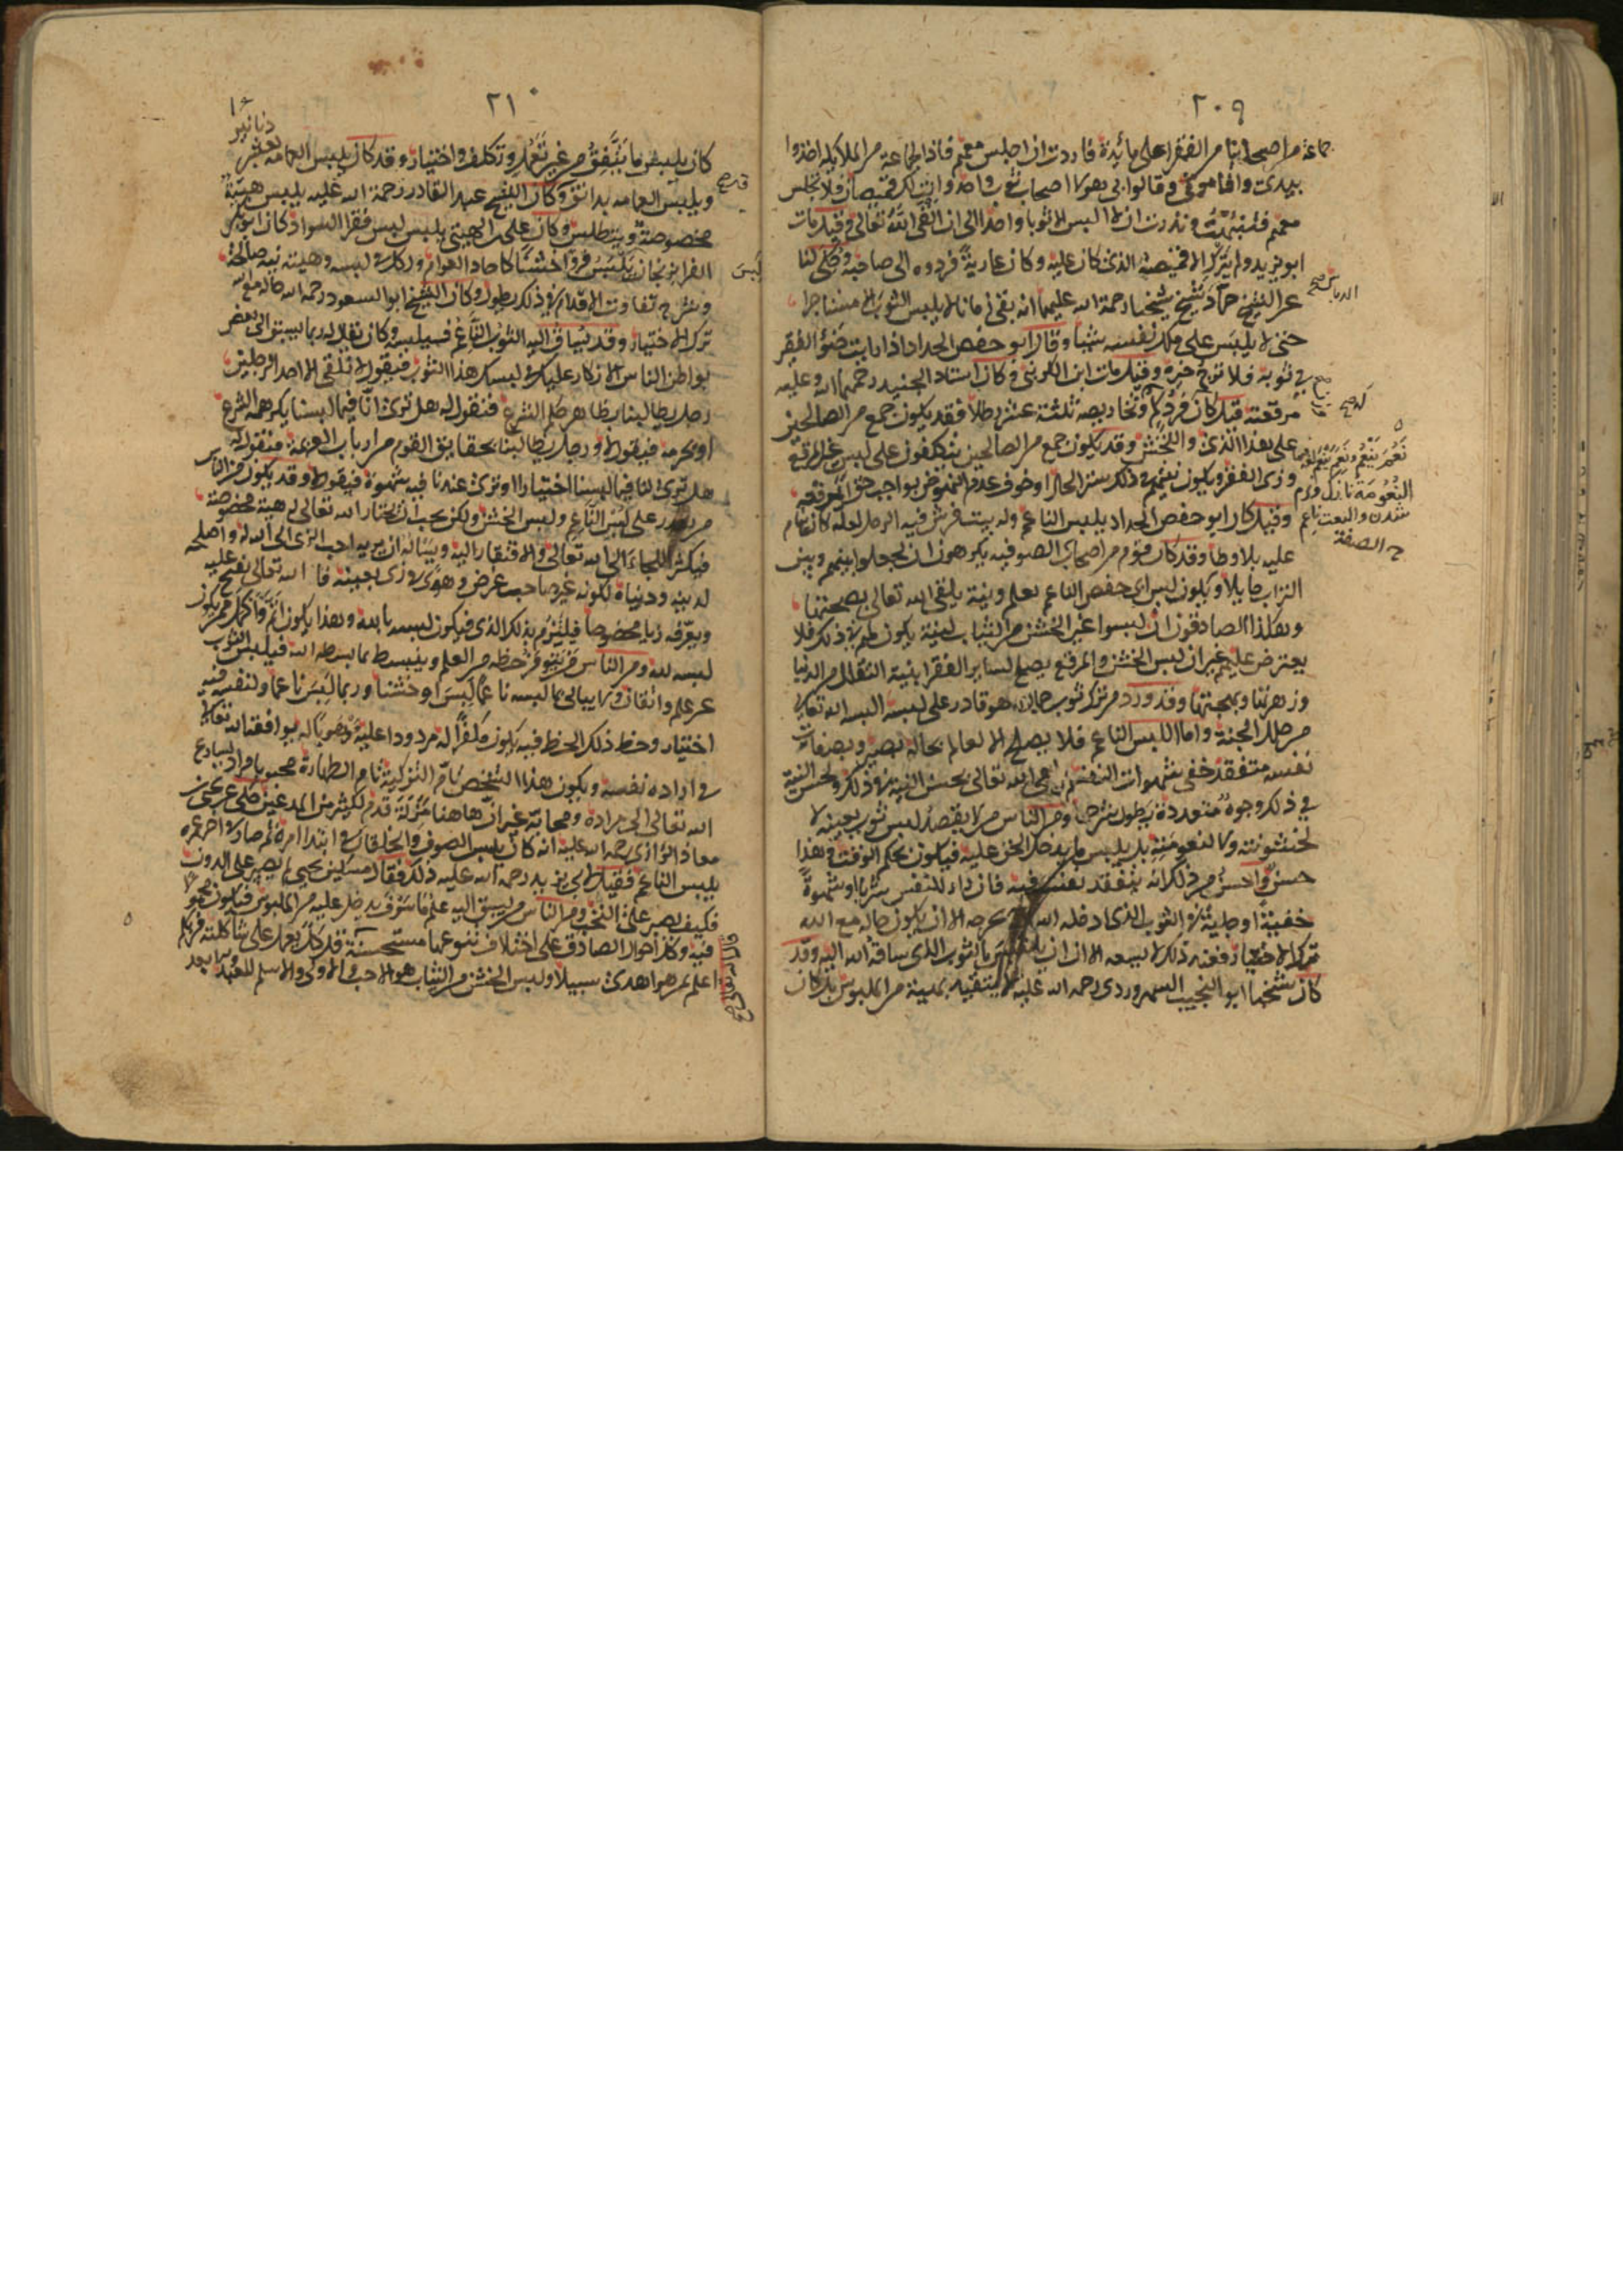 ٢٠٩
جماعة من اصحابنا من الفقرا على مائدة فاردت ان اجلس معهم فاذا بجماعة من الملائكة اخذوا
بيدى واقامونى وقالوا لى هولا اصحاب ثوب واحد وانت لك قميصان فلا تجلس
معهم فتنبهت ونذرت ان لا البس الا ثوبا واحدا الى ان القى الله تعالى وقيل مات
ابو يزيد ولم يترك الا قميصه الذى كان عليه وكان عارية فردوه الى صاحبه وحكى لنا
عن الشيخ حماد شيخ شيخنا رحمة الله عليهما انه بقى زمانا لا يلبس الثوب الا مستاجرا
حتى لا يلبس على ملك نفسه شيئا وقال ابو حفص الحداد اذا رايت ضو الفقير
فى ثوبه فلا ترج خيره وقيل مات ابن الكرنبى وكان استاد الجنيد رحمهما الله وعليه
مرقعته قيل كان فرد كم وتخاريصه ثلثة عشر رطلا فقد يكون جمع من الصالحين
على هذا الزى والتخشن وقد يكون جمع من الصالحين يتكلفون على لبس غير المرقع
وزى الفقر ويكون نيتهم فى ذلك ستر الحال او خوف عدم النهوض بواجب حق المرقعه
وقيل كان ابو حفص الحداد يلبس الناعم وله بيت فرش فيه الرمل لعله كان ينام
عليه بلا وطا وقد كان قوم من اصحاب الصوفيه يكرهون ان يجعلوا بينهم وبين
التراب حايلا ويكون لبس ابى حفص الناعم بعلم ونية يلقى الله تعالى بصحتها
وهكذا الصادقون ان لبسوا غير الخشن من الثياب لنية يكون لهم فى ذلك فلا
يعترض عليهم غير ان لبس الخشن والمرقع يصلح لساير الفقرا بنية التقلل من الدنيا
وزهرتها وبهجتها وقد ورد من ترك ثوب جمال وهو قادر على لبسه البسه الله تعالى
من حلل الجنة واما اللبس الناعم فلا يصلح الا لعالم بحاله بصير بصفات
نفسه متفقد خفى شهوات النفس يلقى الله تعالى بحسن النية فى ذلك ولحسن النية
فى ذلك وجوه متعددة يطول شرحها ومن الناس من لا يقصد لبس ثوب بعينه لا
لخشونته ولا لنعومته بل يلبس ما يدخل الحق عليه فيكون بحكم الوقت وهذا
حسن واحسن من ذلك ان يتفقد نفسه فيه فان راى للنفس شرها وشهوة
خفية او جلية فى الثوب الذى ادخله الله عليه يخرجه الا ان يكون حاله مع الله
ترك الاختيار فعند ذلك لا يسعه الا ان يلبس الثوب الذى ساقه الله اليه وقد
كان شيخنا ابو النجيب السهروردى رحمه الله عليه لا يتقيد بهيئة من الملبوس بل كان
الدباس صح
نعم ينعم ونعم ينعم
شدن والنعت ناعم
ح الصفة
٢١٠
دنانير
كان يلبس ما يتفق من غير تعمد وتكلف واختيار وقد كان يلبس العمامه بعشر
ويلبس العمامه بدانق وكان الشيخ عبد القادر رحمة الله عليه يلبس هيئة
مخصوصة ويتطلس وكان على الهيتى يلبس لبس فقرا السواد وكان ابو بكر
الفرا بزنجان يلبس فروا خشنا كاحاد العوام ولكل فى لبسه وهيئته نية صالحة
وشرح تفاوت الاقدام فى ذلك يطول وكان الشيخ ابو السعود رحمه الله حاله مع الله
ترك الاختيار وقد يساق اليه الثوب الناعم فيلبسه وكان يقال له ربما يسبق الى بعض
بواطن الناس الانكار عليك فى لبسك هذا الثوب فيقول لا نلقى الا احد الرجلين
رجل يطالبنا بظاهر حكم الشرع فنقول له هل ترى ان فيما لبسنا يكرهه الشرع
او يحرمه فيقول لا ورجل يطالبنا بحقايق القوم من ارباب العزيمة فنقول له
هل ترى لنا فيما لبسنا اختيارا او ترى عندنا فيه شهوة فيقول لا وقد يكون من الناس
من يقدر على لبس الناعم ولبس الخشن ولكن يحب ان يختار الله تعالى له هيئة مخصوصة
فيكثر اللجاء الى الله تعالى والافتقار اليه ويساله ان يريه احب الزى الى الله واصلحه
لدينه ودنياه لكونه غير صاحب غرض وهوى فى زى بعينه فالله تعالى يفتح عليه
ويعرفه زيا مخصوصا فيلتزم بذلك الزى فيكون لبسه بالله وهذا يكون اتم واكمل ممن يكون
لبسه لله ومن الناس من يتوفر حظه من العلم وينبسط بما بسطه الله فيلبس الثوب
عن علم وايقان ولا يبالى بما لبسه ناعما لبس او خشنا وربما لبس ناعما ولنفسه فيه
اختيار وحظ ذلك الحظ فيه يكون مكفرا له مردودا عليه موهوبا له يوافقه الله تعالى
فى ارادة نفسه ويكون هذا الشخص تام التزكية تام الطهارة محبوبا مرادا يسارع
الله تعالى الى مراده ومحابه غير ان هاهنا مزلة قدم لكثير من المدعين حكى عن يحيى بن
معاذ الرازى رحمه الله عليه انه كان يلبس الصوف والخلقان فى ابتدا امره ثم صار فى اخر عمره
يلبس الناعم فقيل لابى يزيد رحمه الله عليه ذلك فقال مسكين يحيى لم يصبر على الدون
فكيف يصبر على التحف ومن الناس من يسبق اليه علم ما سوف يدخل عليه من الملبوس فيلبسه
فيه وكل احوال الصادق على اختلاف تنوعها مستحسنة قل كل يعمل على شاكلته فربكم
اعلم بمن هو اهدى سبيلا ولبس الخشن من الثياب هو الاحب والاولى والاسلم للعبد
لبس